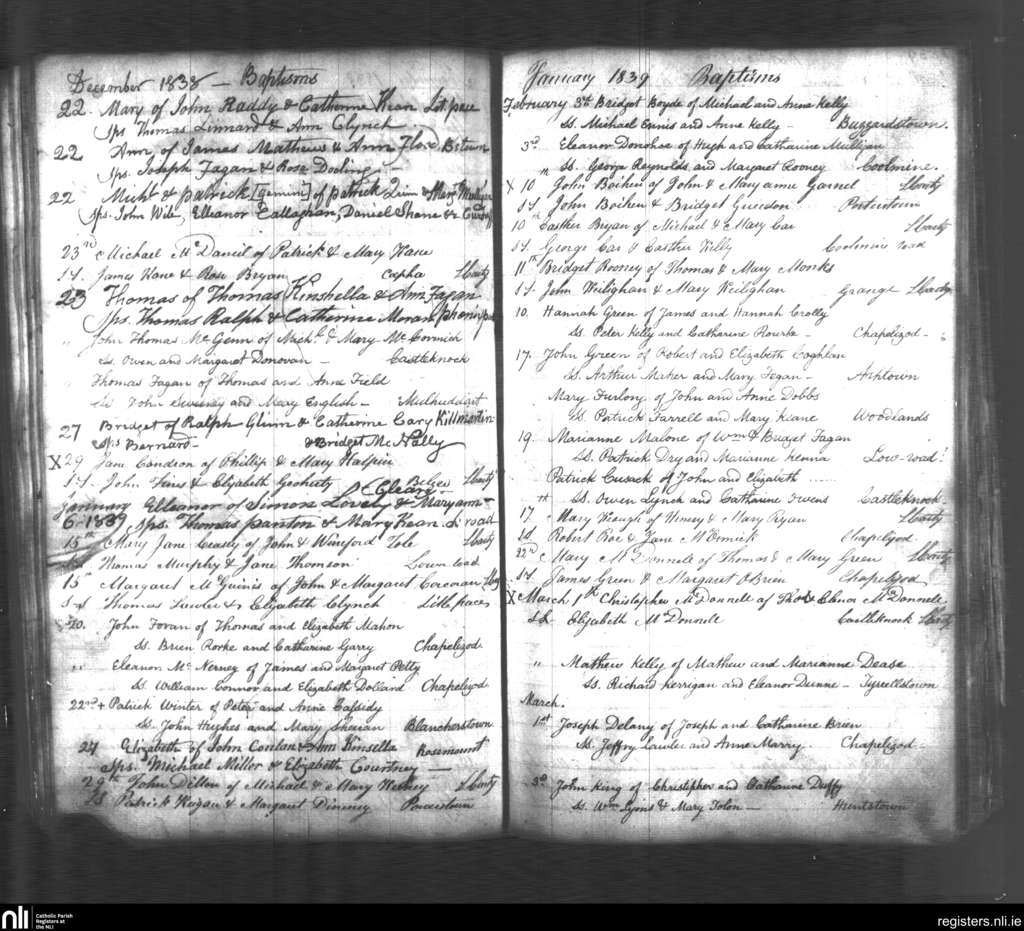 December 1838 — Baptisms
22. Mary of John Raddy & Catherine Kean Lit. pace
Sps Thomas Linnard & Ann Clynch
22 Ann of James Mathews & Ann Flood Bstown
Sps. Joseph Fagan & Rose Dooling
22 Michl & Patrick [gemini] of Patrick Quin & Mary Mulligan
Sps. John Wile, Elleanor Callaghan, Daniel Shane &
23rd Michael McDaniel of Patrick & Mary Kane
James Kane & Rose Bryan Cappa
23 Thomas of Thomas Kinshella & Ann Fagan
Sps. Thomas Ralph & Catherine Moran
" John Thomas McGenn of Michl & Mary McCormick
Ss. Owen and Margaret Donovan — Castleknock
Thomas Fagan of Thomas and Anne Field
Ss. John Sweeny and Mary English — Mulhuddart
27 Bridget of Ralph Glinn & Catherine Cary Killmartin
Sps Bernard — & Bridget McNally
X 29 Jane Condron of Phillip & Mary Halpin
John & Elizabeth Geoherty
January Elleanor of Simon Lovely & Maryann Cleary
6–1839 Sps. Thomas Panton & Mary Kean
15th Mary Jane of John & Winford Tole
Thomas Murphy & Jane Thomson
15th Margaret McGuinis of John & Margaret Corcoran
Thomas Lawder & Elizabeth Clynch Little pace
20. John Foran of Thomas and Elizabeth Mahon
Ss. Brien Rorke and Catharine Garry Chapelizod
" Eleanor McNerney of James and Margaret Petty
Ss. William Connor and Elizabeth Dollard Chapelizod
22nd + Patrick Winter of Peter and Anne Cassidy
Ss. John Hughes and Mary Sheran Blancherstown
24 Elizabeth of John Conlan & Ann Kinsella Rosemount
Sps. Michael Miller & Elizabeth Courtney —
John Dillon of Michael & Mary
Patrick & Margaret
January 1839 Baptisms
February 3rd Bridget Boyde of Michael and Anne Kelly
Ss. Michael Ennis and Anne Kelly — Buzzardstown.
3rd Eleanor Donohoe of Hugh and Catharine Mulligan
Ss. George Reynolds and Margaret Rooney Coolmine.
X 10th John Boiken of John & Mary anne Garnet
John Boiken & Bridget Porterstown
10th Easther Bryan of Michael & Mary Car
George Car & Easther Kelly Coolmine road
11th Bridget Rooney of Thomas & Mary Monks
John Keilighan & Mary Keilighan Grange
10. Hannah Green of James and Hannah Crolly
Ss. Peter Kelly and Catharine Rourke — Chapelizod —
17. John Green of Robert and Elizabeth Coghlan
Ss. Arthur Maher and Mary Fegan — Ashtown
Mary Furlong of John and Anne Dobbs
Ss. Patrick Farrell and Mary Keane Woodlands
19. Marianne Malone of Wm & Bridget Fagan
Ss. Patrick Dry and Marianne Kenna Low-road
Patrick Cusack of John and Elizabeth ......
Ss. Owen Lynch and Catharine Owens Castleknock
17th Mary Keough of & Mary Ryan
18 Robert Roe & Jane McCormick Chapelizod
22nd Mary McDonnell of Thomas & Mary Green
James Green & Margaret O'Brien Chapelizod
X March 1st Christopher McDonnell of Thos & Elenor McDonnell
SS. Elizabeth McDonnell Castleknock
" Mathew Kelly of Mathew and Marianne Dease
Ss. Richard Kerrigan and Eleanor Dunne — Tyrrellstown
March.
1st Joseph Delany of Joseph and Catharine Brien
Ss. Jeffry Lawler and Anne Marry. Chapelizod —
3rd John King of Christopher and Catharine Duffy
Ss. Wm Lyons & Mary Tolon — Huntstown
nli Catholic Parish
Registers at
the NLI
registers.nli.ie